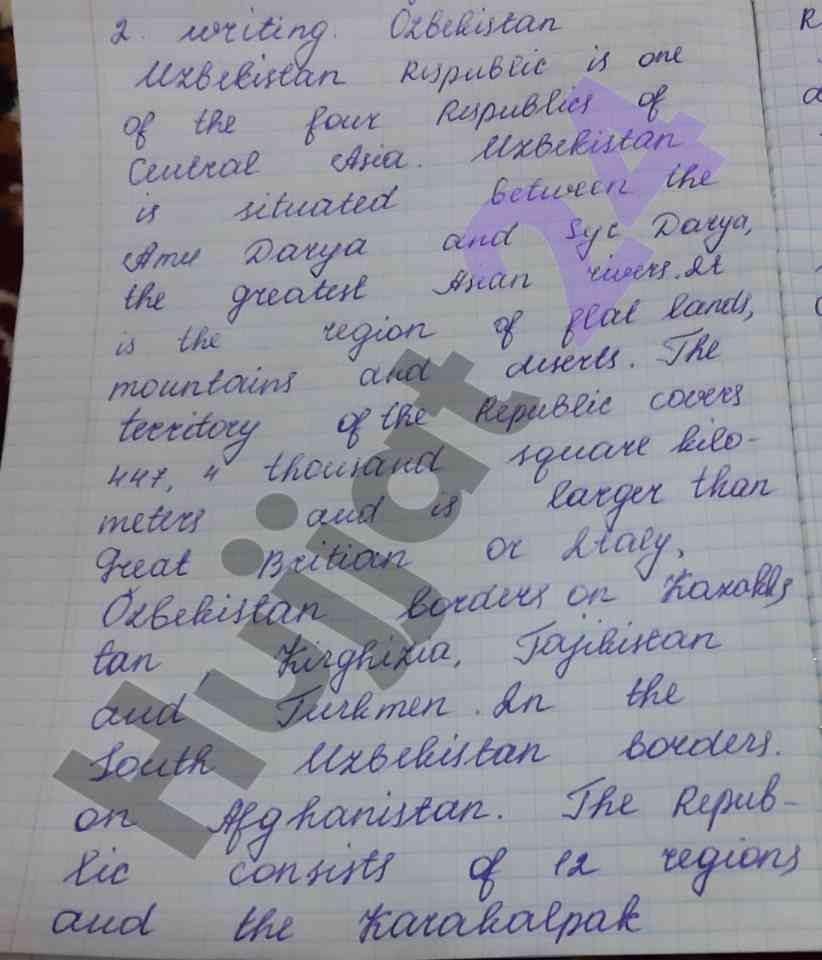 2. writing. Özbekistan
Uzbekistan Respublic is one
of the four Respublics of
Central Asia. Uzbekistan
is situated between the
Amu Darya and Syr Darya,
the greatest Asian rivers. It
is the region of flat lands,
mountains and deserts. The
territory of the Republic covers
447, 4 thousand square kilo-
meters and is larger than
Great Britian or Italy.
Özbekistan borders on Kazakhs
tan, Kirghizia, Tajikistan
and Turkmen. In the
South Uzbekistan borders.
on Afghanistan. The Repub-
lic consists of 12 regions
and the Karakalpak
Hujjat 24
R